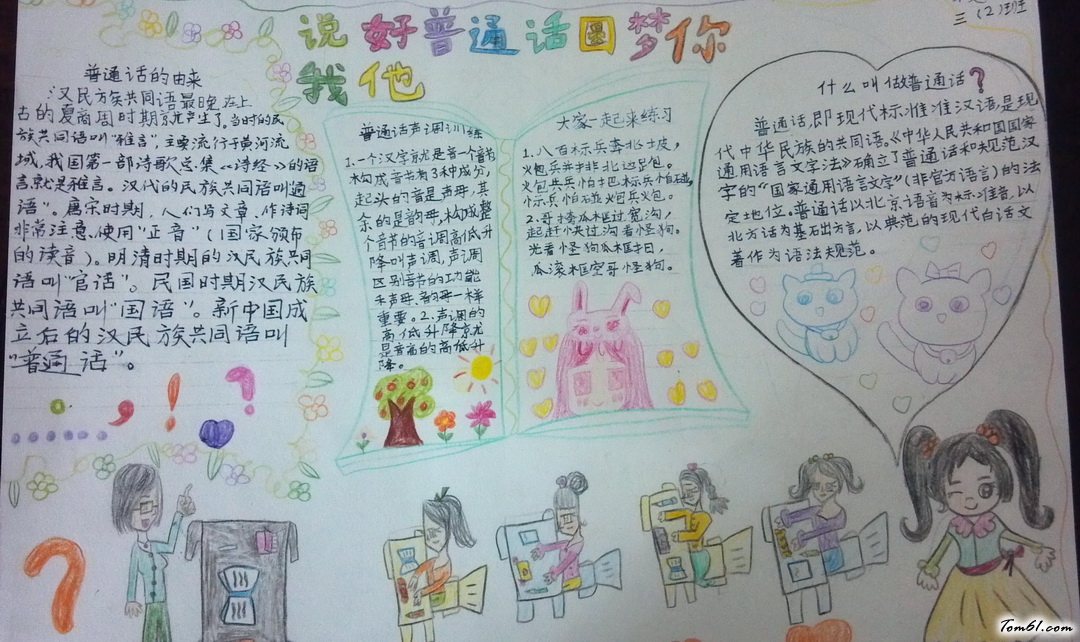 三(2)班
说好普通话圆梦你
我他
普通话的由来
汉民族共同语最晚在上
古的夏商周时期就产生了。当时的民
族共同语叫“雅言”,主要流行于黄河流
域,我国第一部诗歌总集《诗经》的语
言就是雅言。汉代的民族共同语叫通
语”。唐宋时期,人们写文章、作诗词
非常注意,使用“正音”(国家颁布
的读音)。明清时期的汉民族共同
语叫“官话”。民国时期汉民族
共同语叫“国语”。新中国成
立后的汉民族共同语叫
“普通话”。
普通话声调训练
1.一个汉字就是音一个音节
构成音节有3种成分,
起头的音是声母,其
余的是韵母,构成整
个音节的音调高低升
降叫声调,声调
区别音节的功能
和声母、韵母一样
重要。2.声调的
高低升降就
是音高的高低升
降。
大家一起来练习
1.八百标兵奔北坡,
火炮兵并排北边跑。
火包兵怕把标兵怕碰,
标兵怕碰火包兵火包。
2.哥挎瓜框过宽沟,
起赶快过沟看怪狗。
光看怪狗瓜框扣,
瓜滚框空哥怪狗。
什么叫做普通话?
普通话,即现代标准准汉语,是现
代中华民族的共同语。《中华人民共和国国家
通用语言文字法》确立了普通话和规范汉
字的“国家通用语言文字”(非官方语言)的法
定地位。普通话以北京语音为标准音,以
北方话为基础方言,以典范的现代白话文
著作为语法规范。
Tom61.com